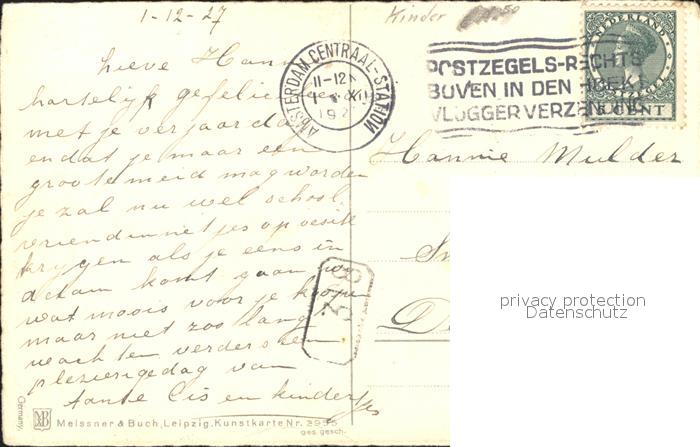 1-12-27
Kinder
50
Lieve Hannie
hartelijk gefelici
met je verjaardag
en dat je maar een
groote meid mag worden
je zal nu wel school
vriendinnetjes op vesite
krygen als je eens in
komt gaan we
wat moois voor je koopen
maar niet zoo lang
wachten verders een
plezierige dag van
tante Cis en kindertjes
AMSTERDAM CENTRAAL-STATION
11-12
XII
192
POSTZEGELS-RECHTS
BOVEN IN DEN HOEK
VLUGGER VERZENDING
NEDERLAND
CENT
Hannie Mulder
privacy protection
Datenschutz
Germany.
MB
Meissner & Buch, Leipzig. Kunstkarte Nr. 2955
ges. gesch.